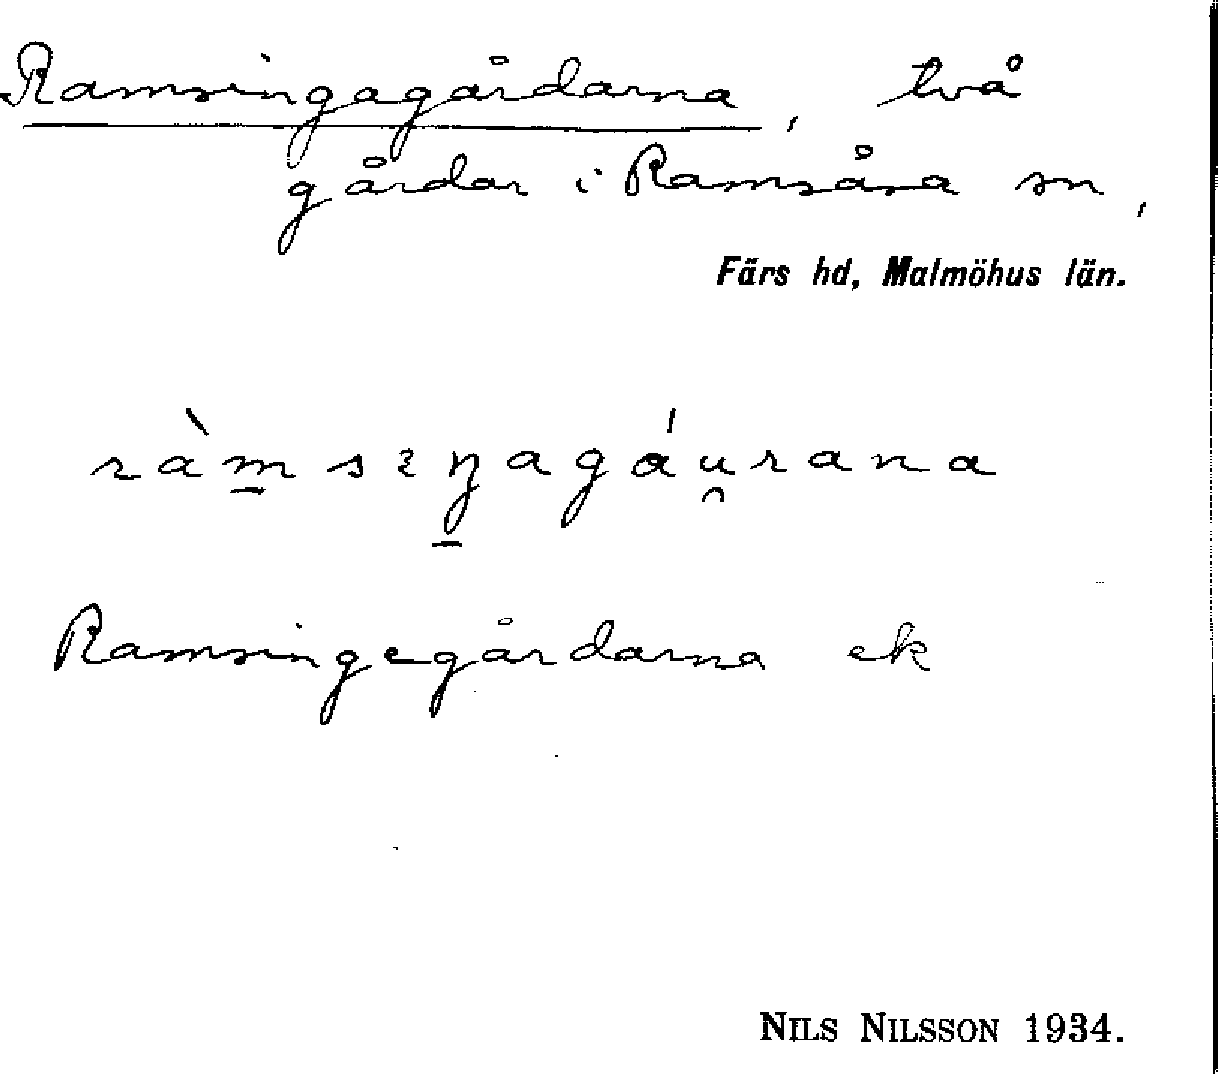 Ramsingagårdarna, två
gårdar i Ramsåsa sn,
Färs hd, Malmöhus län.
ràm̱sɛŋ̱agáu̯rana
Ramsingegårdarna ek
NILS NILSSON 1934.